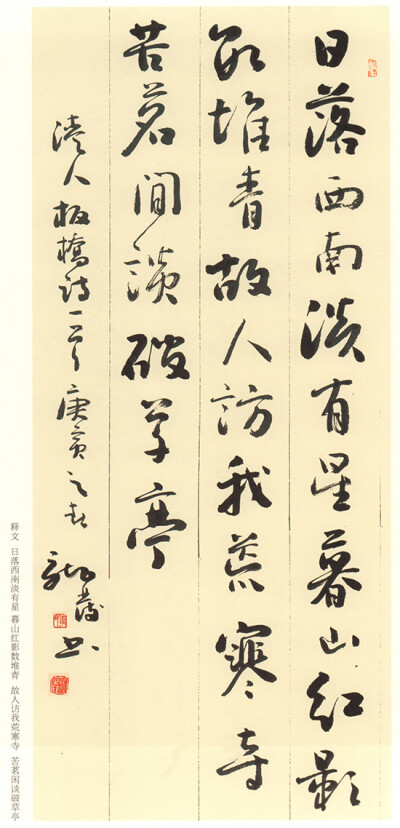 日落西南淡有星暮山红影
数堆青故人访我荒寒寺
苦茗間谈破草亭
清人板橋诗一首庚寅之春 书
释文 日落西南淡有星 暮山红影数堆青 故人访我荒寒寺 苦茗闲谈破草亭